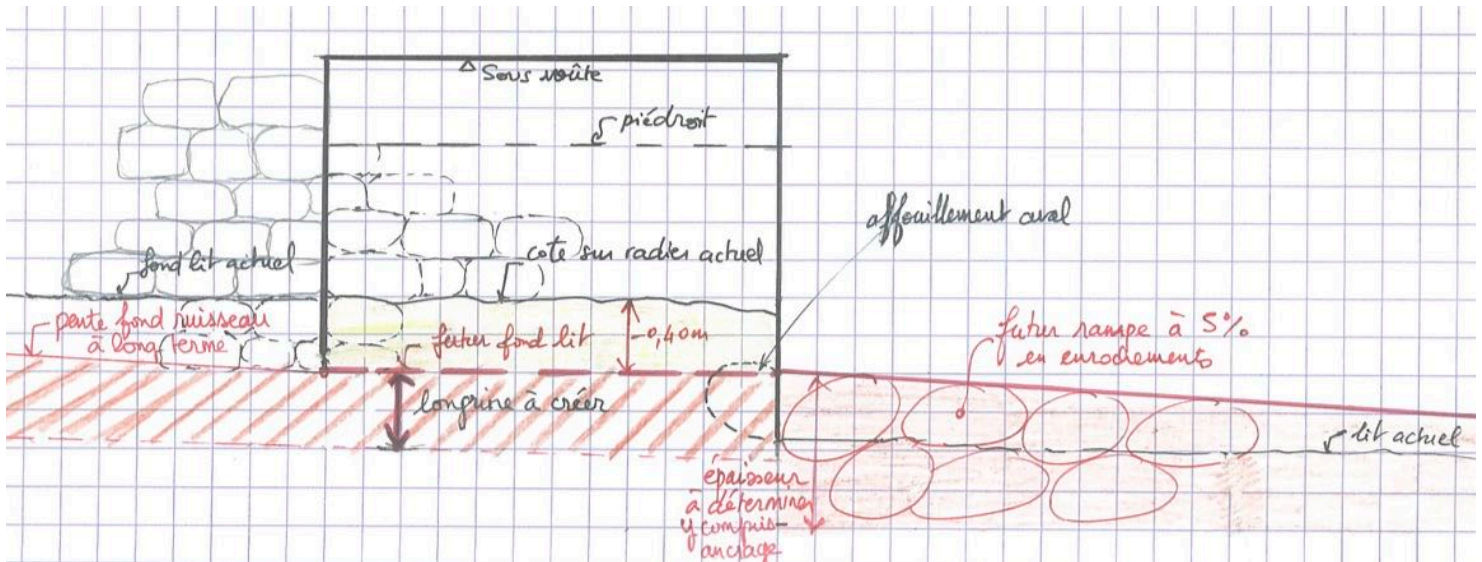 Sous voûte
piédroit
affouillement aval
fond lit actuel
cote sur radier actuel
pente fond ruisseau
à long terme
futur fond lit
-0,40m
futur rampe à 5%
en enrochements
longrine à créer
lit actuel
épaisseur
à déterminer
y compris
ancrage